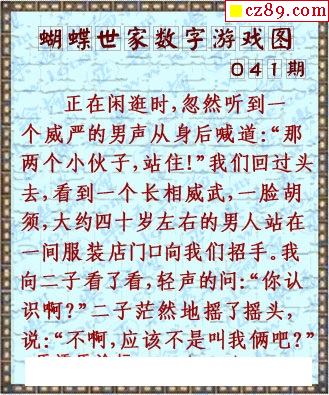 cz89.com
蝴蝶世家数字游戏图
041期
正在闲逛时,忽然听到一
个威严的男声从身后喊道:“那
两个小伙子,站住!”我们回过头
去,看到一个长相威武,一脸胡
须,大约四十岁左右的男人站在
一间服装店门口向我们招手。我
向二子看了看,轻声的问:“你认
识啊?”二子茫然地摇了摇头,
说:“不啊,应该不是叫我俩吧?”